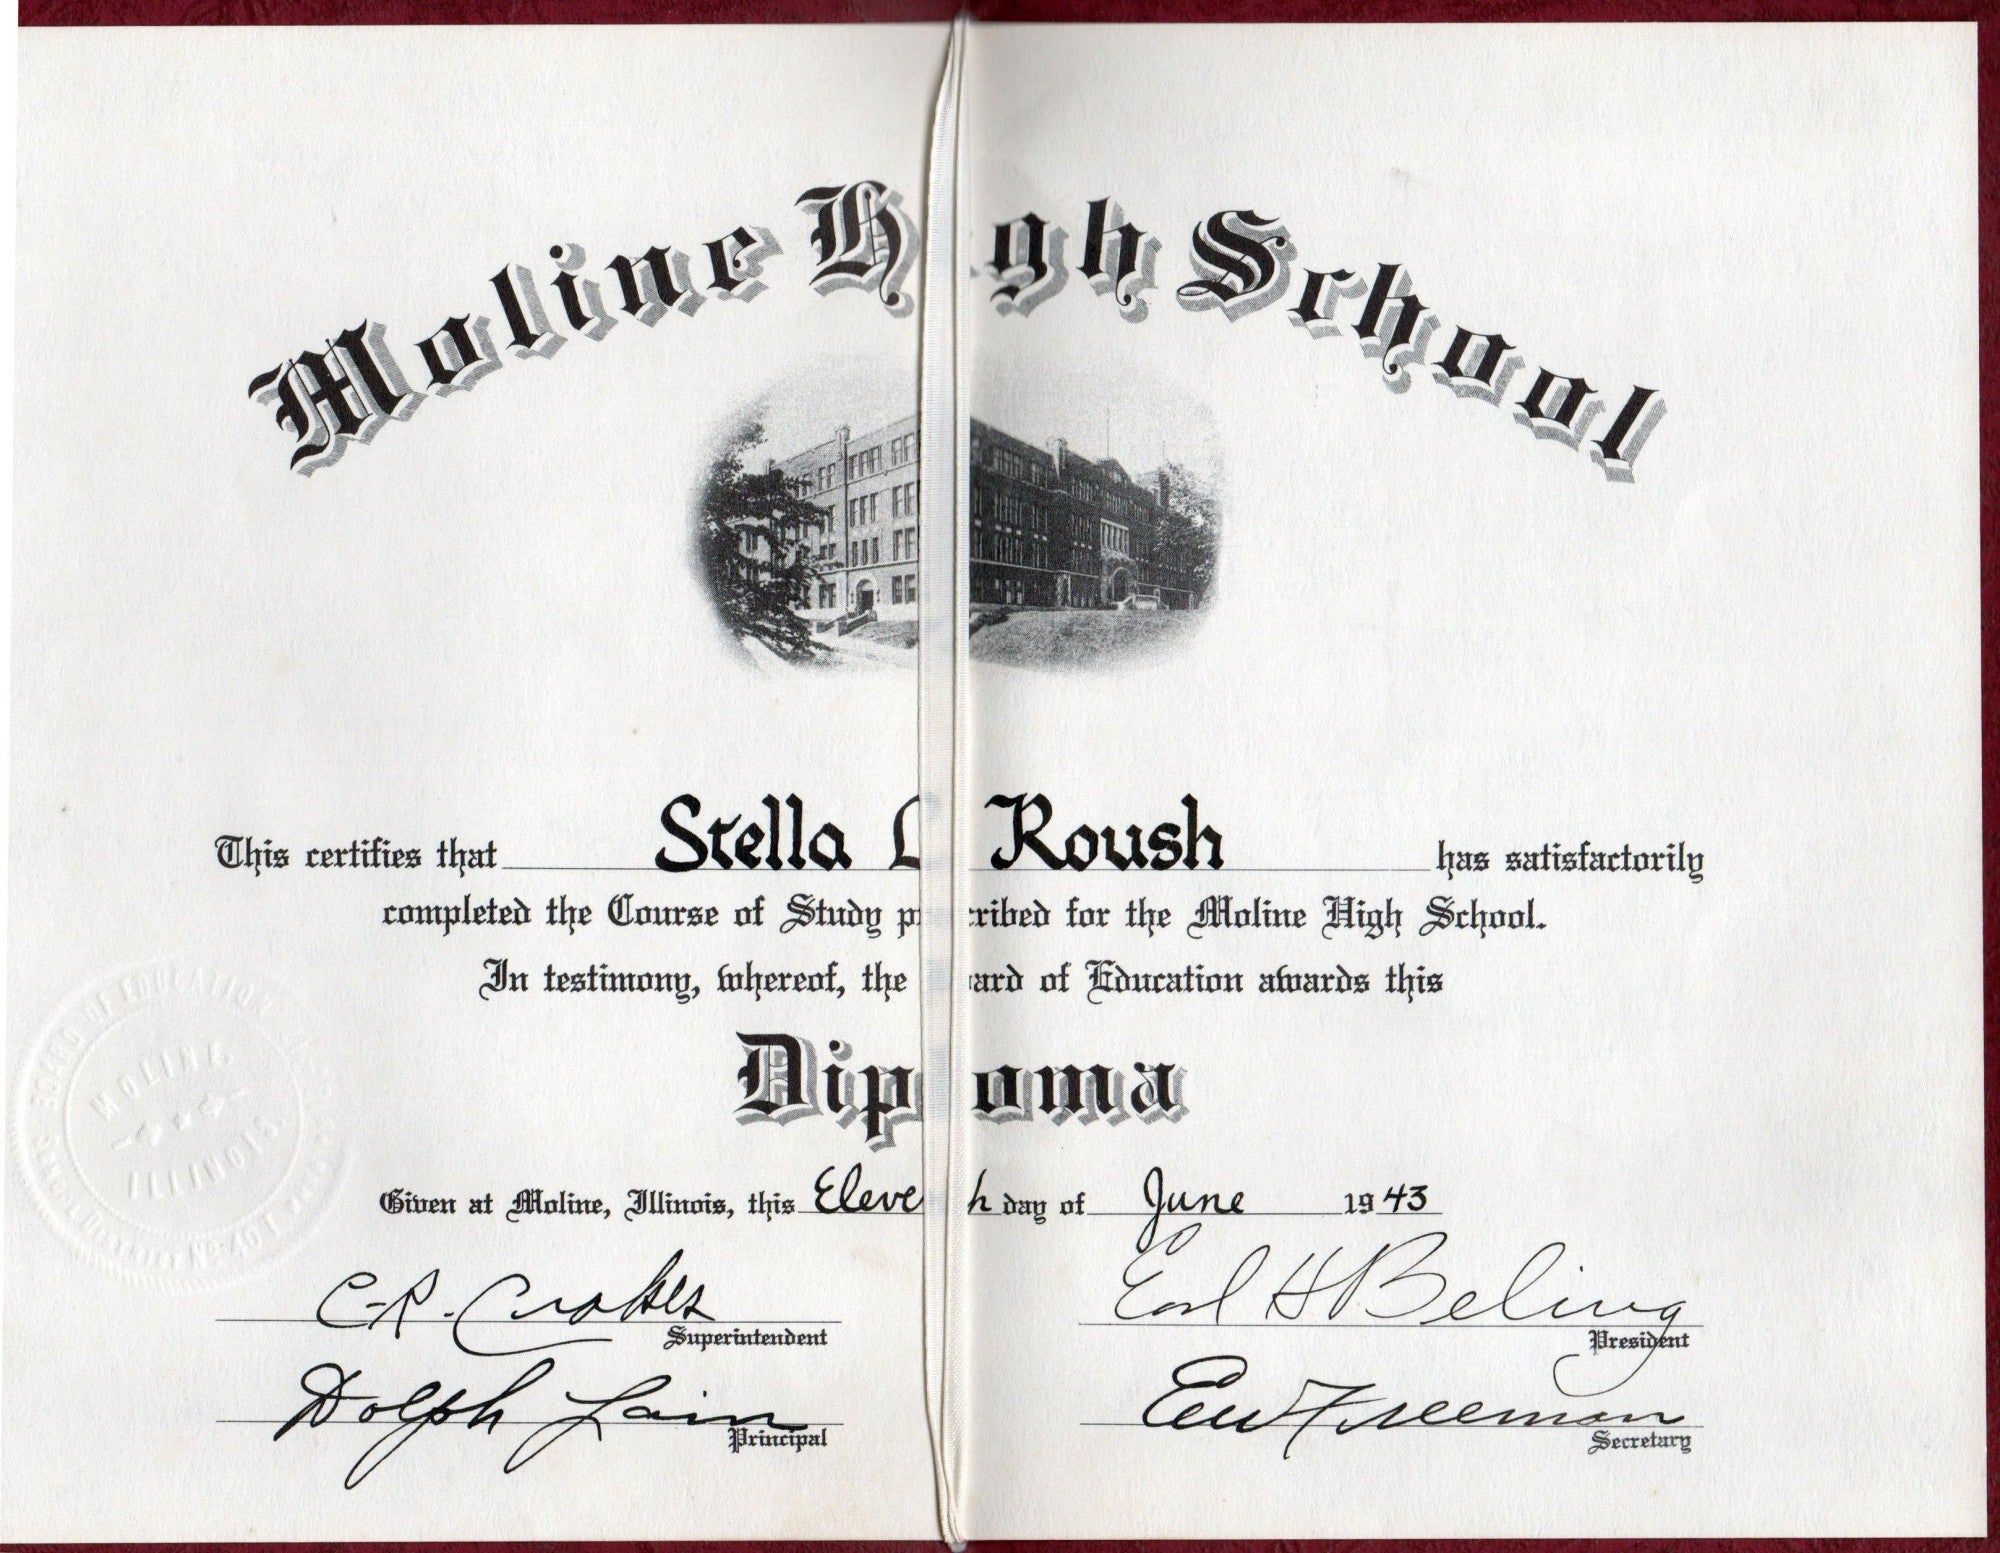 Moline High School
This certifies that Stella L Roush has satisfactorily
completed the Course of Study prescribed for the Moline High School.
In testimony, whereof, the Board of Education awards this
Diploma
Given at Moline, Illinois, this Eleventh day of June 1943
C-R. Crakes
Superintendent
Earl H Beling
President
Dolph Lain
Principal
Freeman
Secretary
BOARD OF EDUCATION
MOLINE
ILLINOIS
No. 40